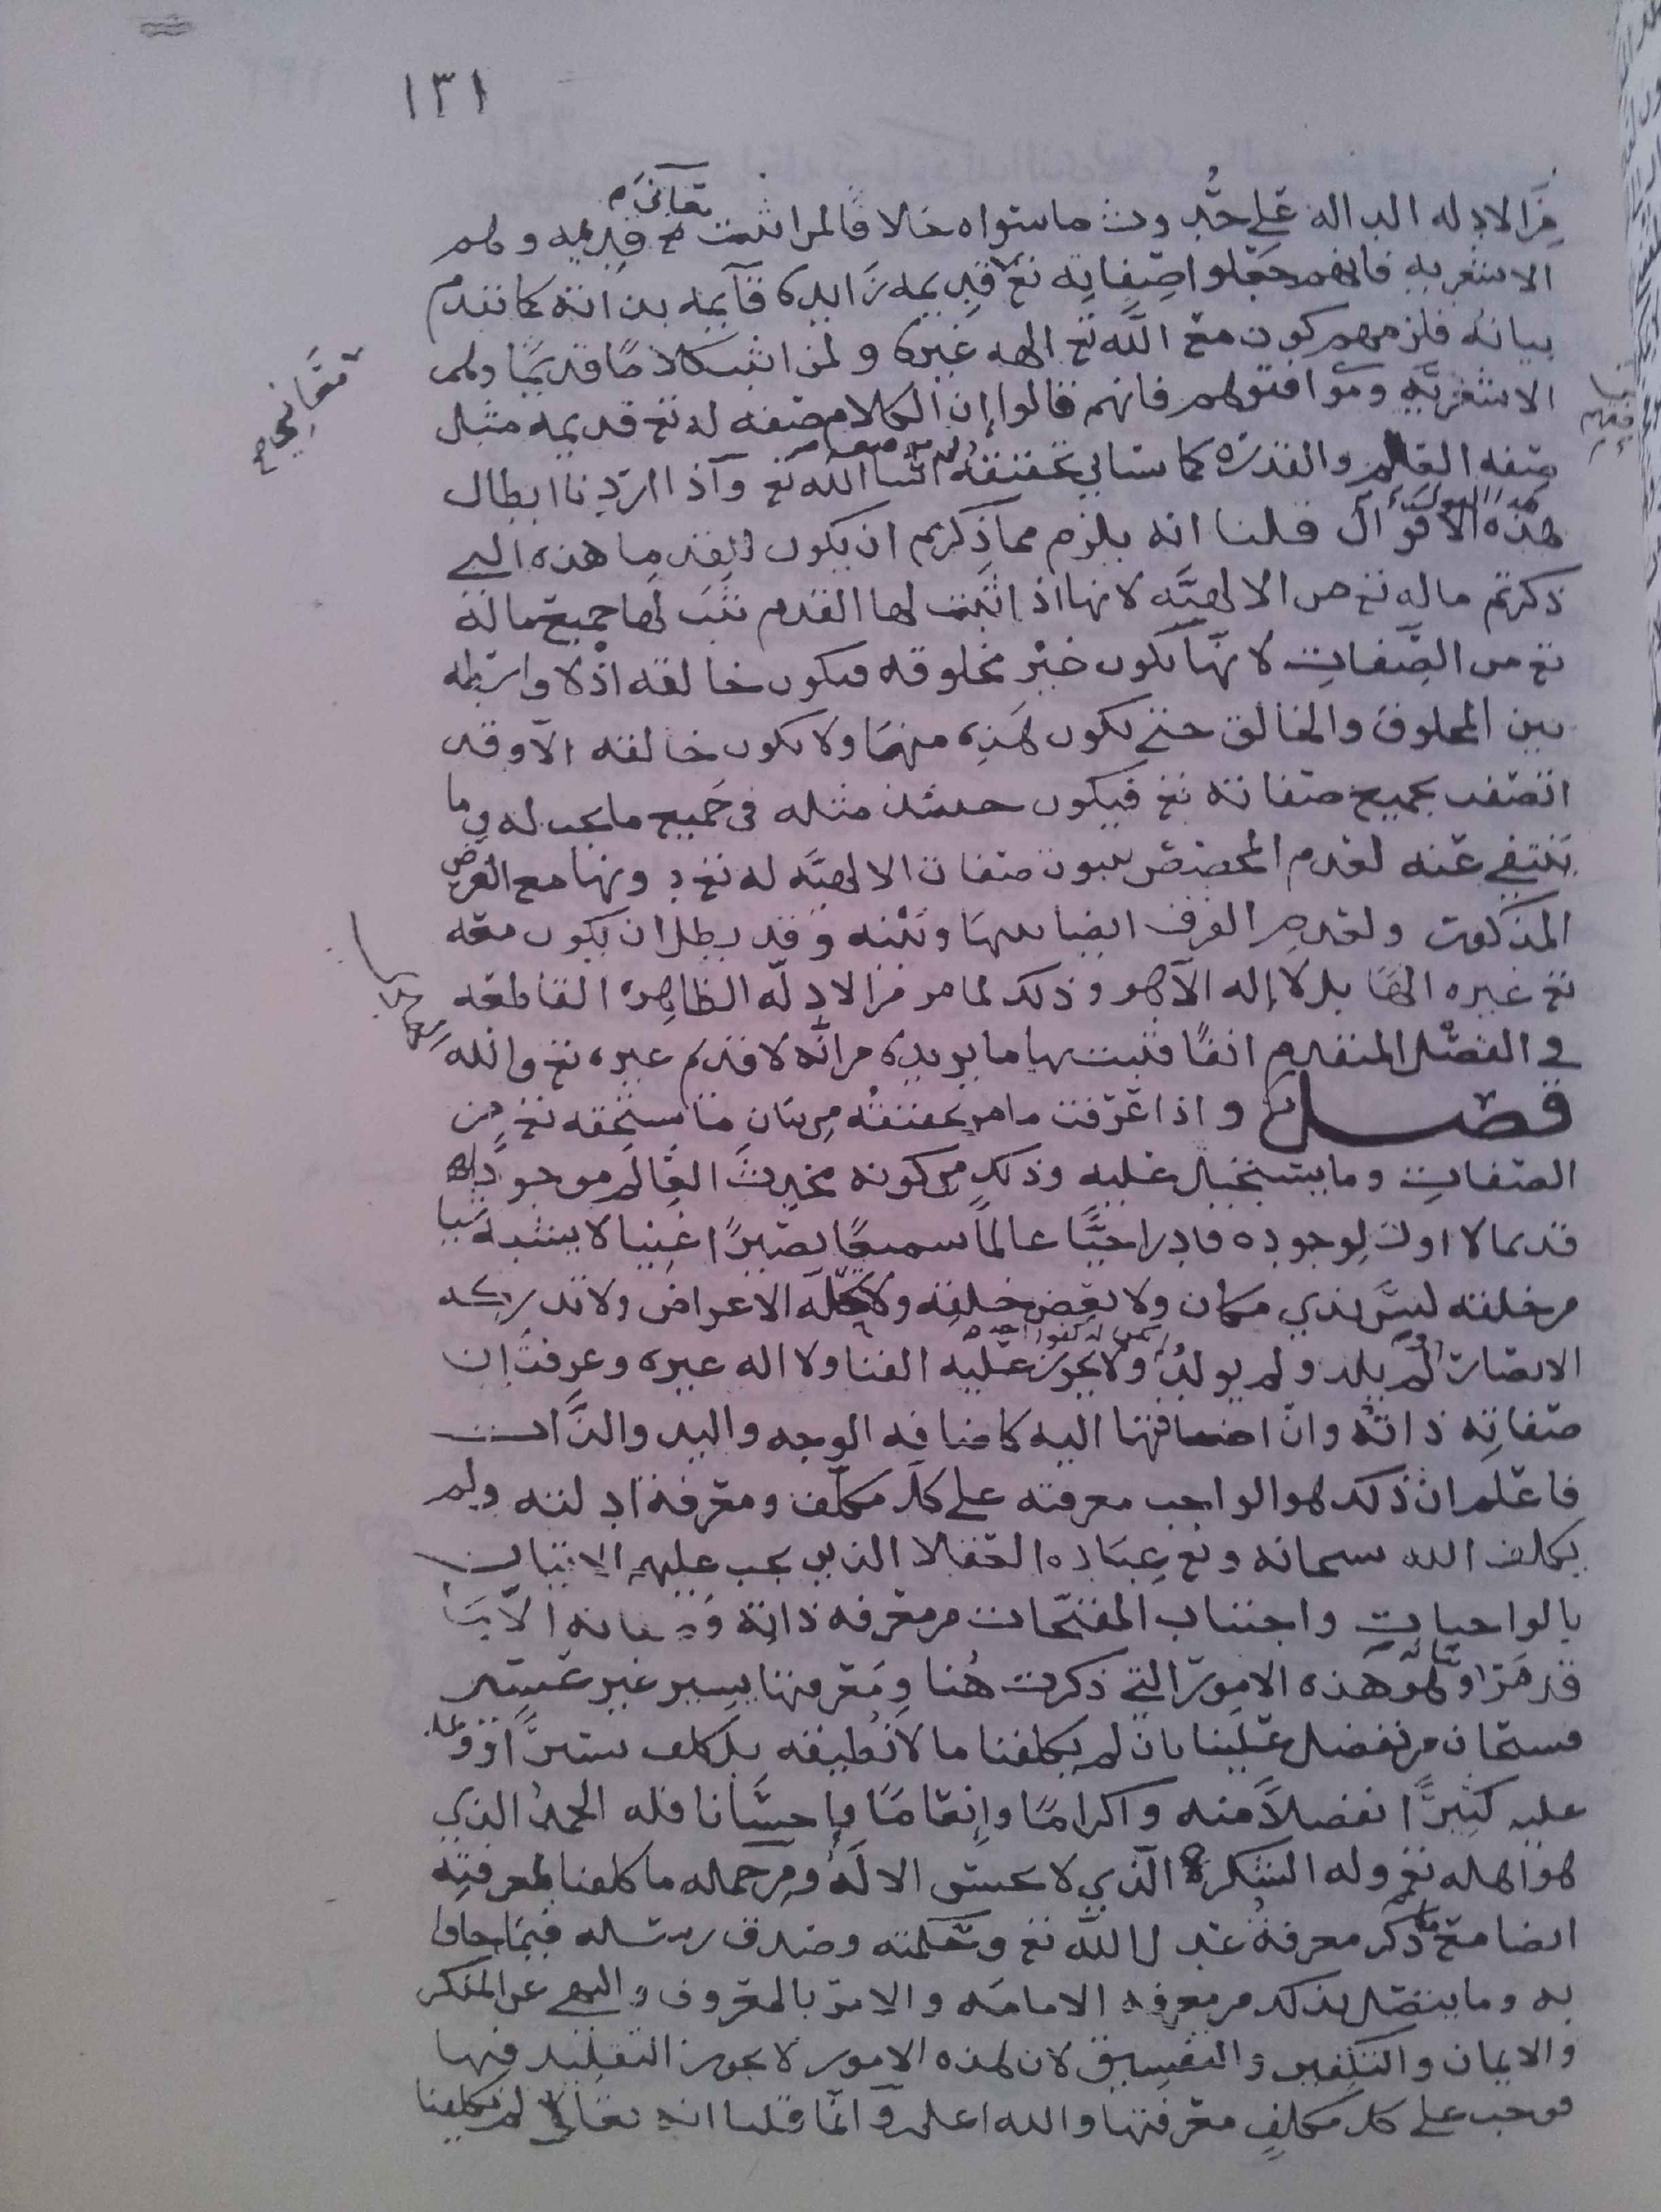 ١٣١
من الادله الداله على حدوث ما سواه خلافا لمن اثبت مع قديمه وهم
تعالى
الاشعريه فانهم جعلوا صفاته تع قديمه زايده قآيمه بذاته كما تقدم
بيانه فلزمهم كون مع الله تع الهه غيره ولمن اثبت كلامًا قديمًا وهم
الاشعريَّه وموافقوهم فانهم قالوا إن الكلام صفه له تع قديمه مثل
صفه العالم والقدره كما سياتي تحقيقه انشا الله تع وآذا اردنا ابطال
هذه الاقوال قلنا انه يلزم مما ذكرتم ان يكون للقدما هذه التي
ذكرتم ماله تع من الالهيَّه لانها اذا ثبت لها القدم ثبت لها جميع ماله
تع من الصّفات لانَّها تكون غير مخلوقه فيكون خالقه اذ لا واسطه
بين المخلوق والخالق حتى يكون هذه منهما ولا يكون خالقه الا وقد
اتصف بجميع صفاته تع فيكون حينئذ مثله فى جميع ما يجب له وما
ينتفي عنه لعدم المخصص بثبوت صفات الالهيَّه له تع دونها مع الفرض
المذكور ولعدم الفرق ايضا بينها وبينه وقد بطل ان يكون معه
تع غيره الهًا بل لا إله الا هو وذلك لما مر من الادلّه الظاهره القاطعه
في الفصل المتقدم انفًا فثبت بها ما نريده من انَّه لا قديم غيره تع والله
فصل واذا عرفت ما مر تحقيقه من بيان ما يستحقه تع من
الصفات وما يستحيل عليه وذلك من كونه محدث العالم موجودا
قديما لا اول لوجوده قادرا حيًّا عالماً سميعًا بصيرًا غنيا لا يشبه شيا
من خلقه ليس بذي مكان ولا بعض خلقه ولا تحله الاعراض ولا تدركه
الابصار لم يلد ولم يولد ولا يجوز عليه الفنا ولا اله غيره وعرفت ان
يكن له كفوا احد
صفاته ذاته وان اضافتها اليه كاضافه الوجه واليد والذات
فاعلم ان ذلك هو الواجب معرفته على كل مكلّف ومعرفة ادلته ولم
يكلف الله سبحانه وتع عباده العقلا الذين يجب عليهم الاتيان
بالواجبات واجتناب المقبّحات من معرفه ذاته وصفاته الا بما
قد مر وهو هذه الامور التي ذكرت هُنا ومعرفتها يسير غير عسير
فسبحان من تفضل علينا بان لم يكلفنا ما لا نُطيقه بل كلف يسيرًا ووعد
عليه كثيرًا تفضلاً منه واكرامًا وإنعامًا وإحسانا فله الحمدُ الذي
هو اهله تع وله الشكر الّذي لا يحق الا لَهُ ومن جمله ما كلفنا بمعرفته
ايضا مع ما ذكر معرفة عدل الله تع وحكمته وصدق رسله فيما جاوا
به وما يتصل بذلك من معرفه الامامه والامر بالمعروف والنهي عن المنكر
والايمان والتكفير والتفسيق لان هذه الامور لا يجوز التقليد فيها
فوجب على كل مكلفٍ معرفتها والله اعلم وآنما قلنا انه تعالى لم يكلفنا